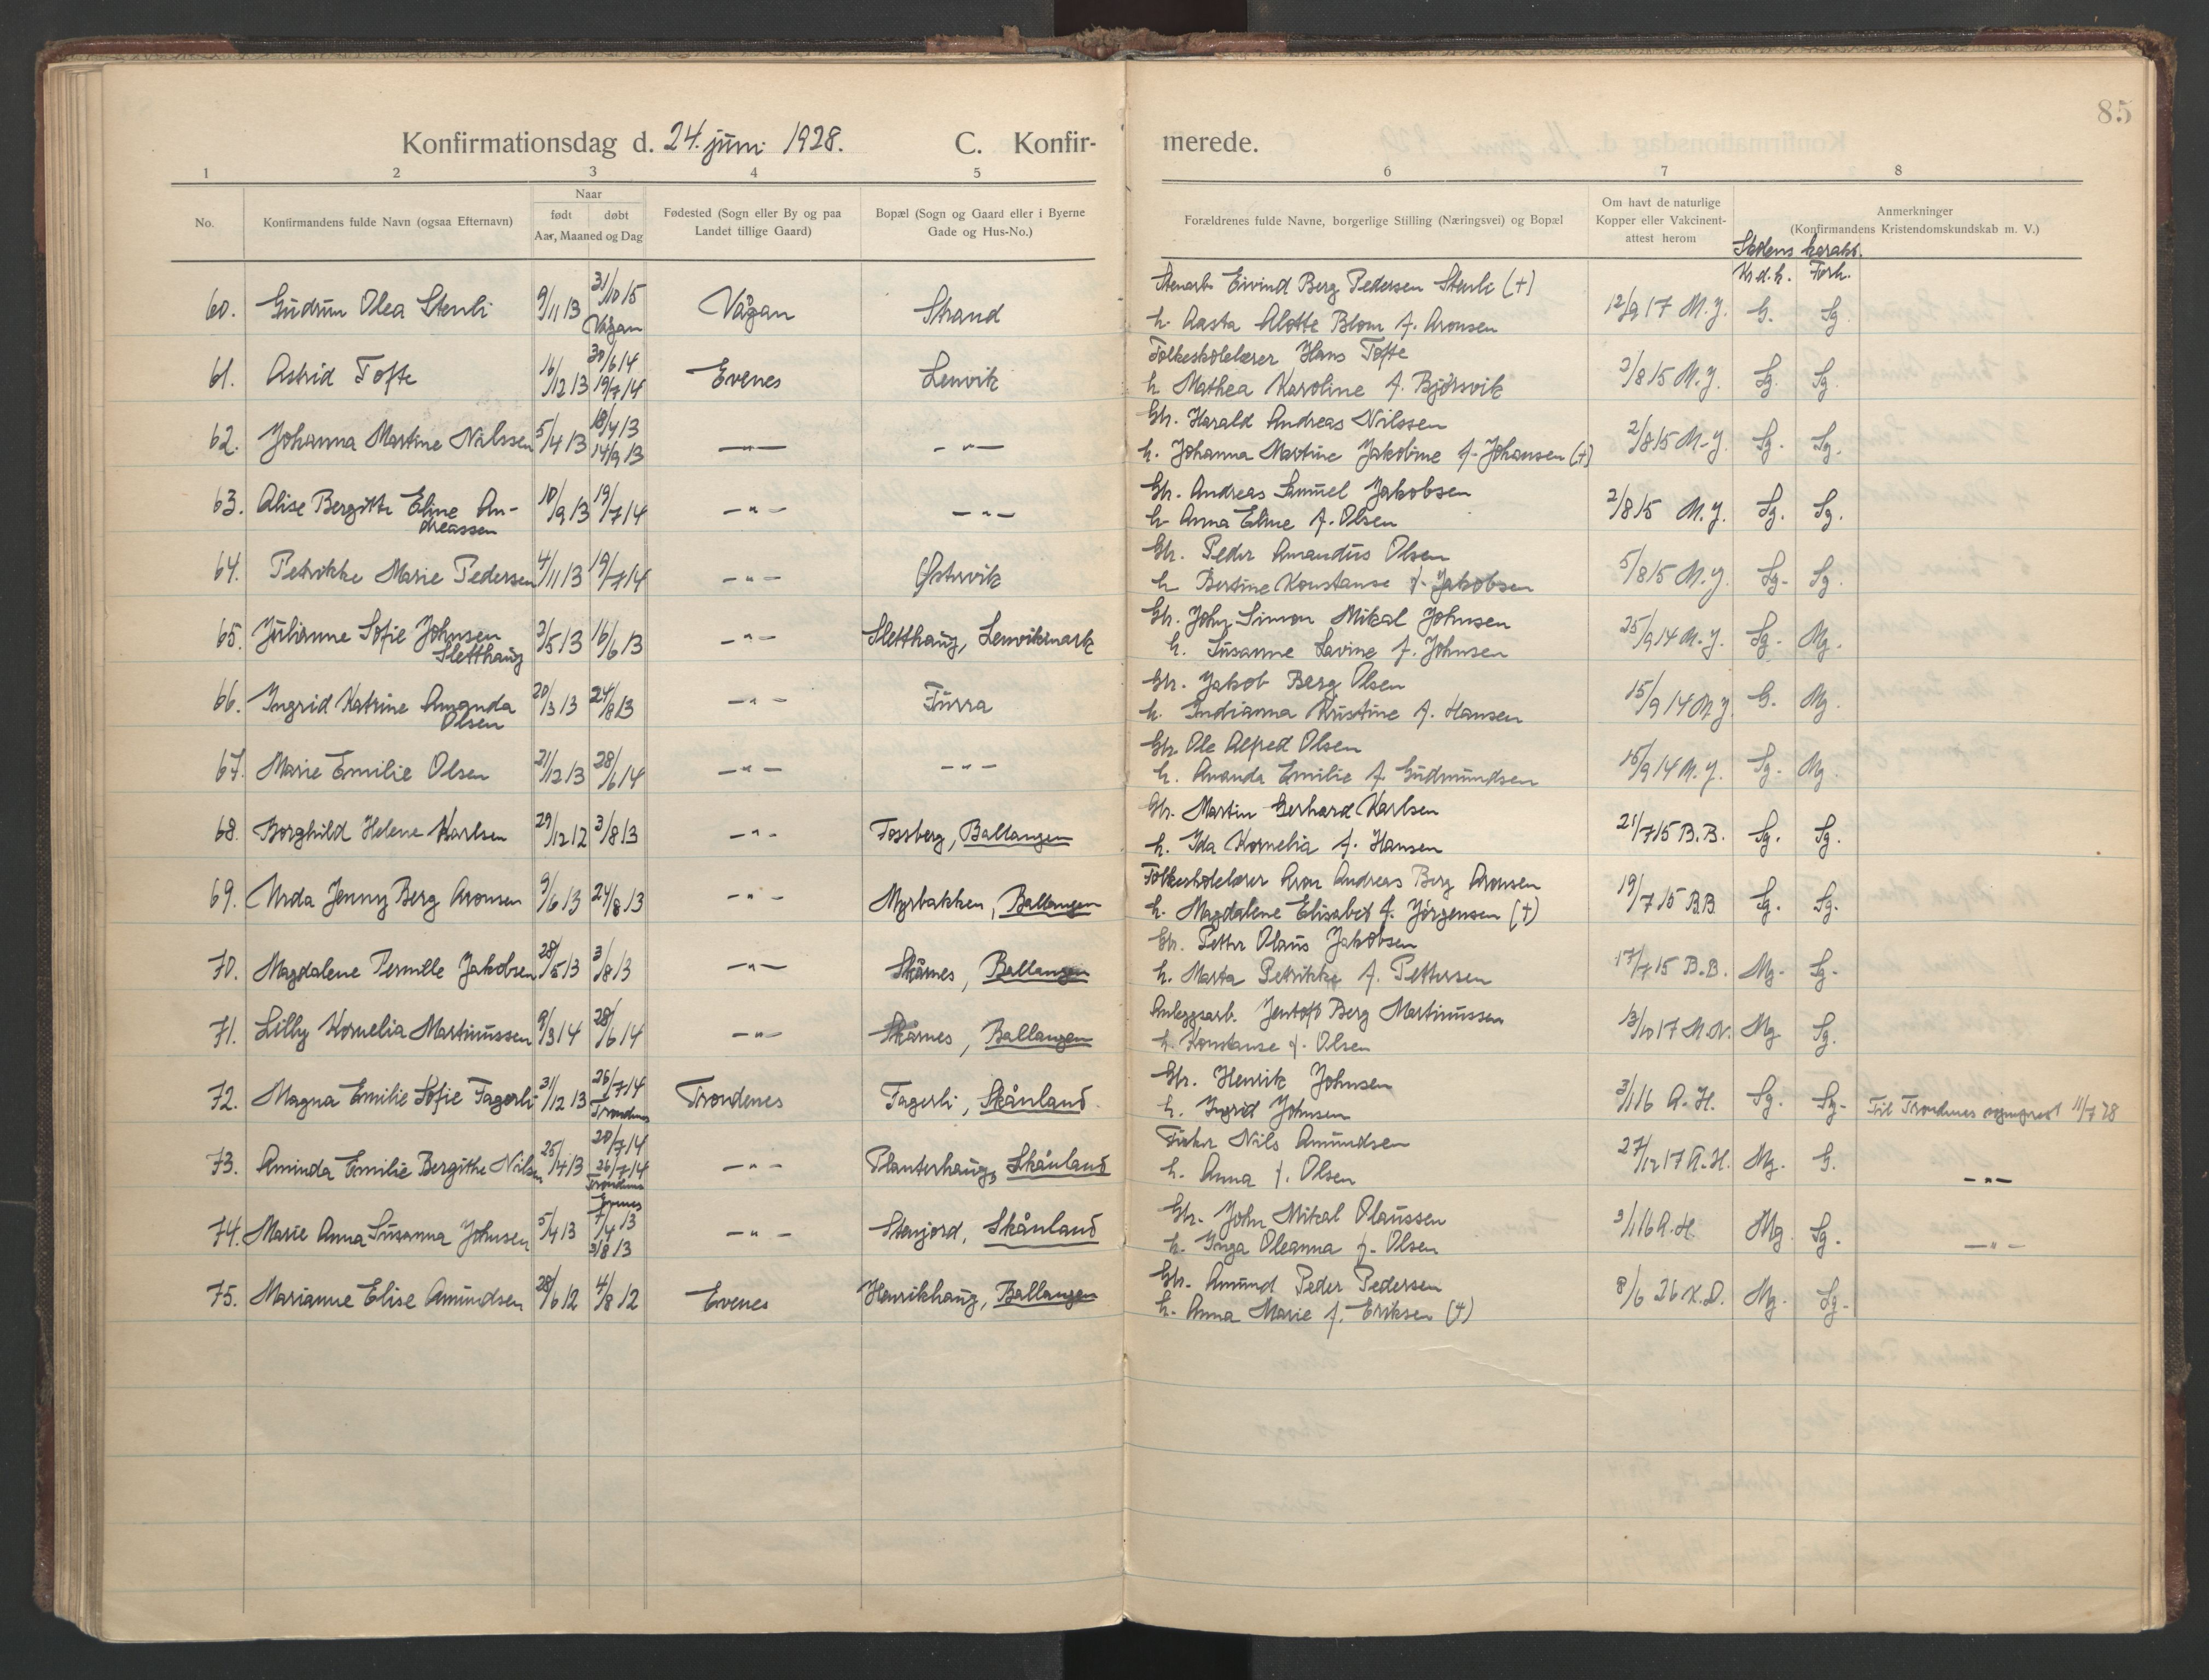 85
Konfirmationsdag d. 24. juni 1928. C. Konfir- merede.
1 2 3 4 5 6 7 8
No.
Konfirmandens fulde Navn (ogsaa Efternavn)
Naar
født døbt
Aar, Maaned og Dag
Fødested (Sogn eller By og paa
Landet tillige Gaard)
Bopæl (Sogn og Gaard eller i Byerne
Gade og Hus-No.)
Forældrenes fulde Navne, borgerlige Stilling (Næringsvei) og Bopæl
Om havt de naturlige
Kopper eller Vakcinent-
attest herom
Anmerkninger
(Konfirmandens Kristendomskundskab m. V.)
Skolens karakt.
Kr.d.k. Forh.
60. Gudrun Olea Stenli 9/11 13 31/10 15 Vågan Vågan Strand
Stenarb. Eivind Berg Pedersen Stenli (+)
h. Aasta Alotte Blom f. Aronsen 12/9 17 M.J. G. Sg.
61. Astrid Tofte 16/12 13 30/6 14 19/7 14 Evenes Lenvik
Folkeskolelærer Hans Tofte
h. Mathea Karoline f. Bjørsvik 2/8 15 M.J. Sg. Sg.
62. Johanna Martine Nilssen 5/4 13 18/4 13 14/9 13 — — - " —
Gbr. Harald Andreas Nilssen
h. Johanna Martine Jakobine f. Johansen (+) 2/8 15 M.J. Sg. Sg.
63. Alise Bergitte Eline An-
dreassen 10/9 13 19/7 14 - " - - " -
Gbr. Andreas Samuel Jakobsen
h. Anna Eline f. Olsen 2/8 15 M.J. Sg. Sg.
64. Petrikke Marie Pedersen 4/11 13 19/7 14 - " - Østervik
Gbr. Peder Amandus Olsen
h. Bertine Konstanse f. Jakobsen 5/8 15 M.J. Sg. Sg.
65. Julianne Sofie Johnsen
Sletthaug 2/5 13 16/6 13 - " - Sletthaug, Lenvikmark
Gbr. John Simon Mikal Johnsen
h. Susanne Lavine f. Johnsen 25/9 14 M.J. Sg. Mg.
66. Ingrid Katrine Amanda
Olsen 20/3 13 24/8 13 - " - Turra
Gbr. Jakob Berg Olsen
h. Indianna Kristine f. Hansen 15/9 14 M.J. G. Mg.
67. Marie Emilie Olsen 21/12 13 28/6 14 - " - - " -
Gbr. Ole Alfred Olsen
h. Amanda Emilie f. Gudmundsen 15/9 14 M.J. Sg. Mg.
68. Borghild Helene Karlsen 29/12 12 3/8 13 - " - Fossberg, Ballangen
Gbr. Martin Gerhard Karlsen
h. Ida Kornelia f. Hansen 21/7 15 B.B. Sg. Sg.
69. Urda Jenny Berg Aronsen 9/6 13 24/8 13 - " - Myrbakken, Ballangen
Folkeskolelærer Aron Andreas Berg Aronsen
h. Magdalene Elisabet f. Jörgensen (+) 19/7 15 B.B. Sg. Sg.
70. Magdalene Pernille Jakobsen 28/5 13 3/8 13 - " - Skårnes, Ballangen
Gbr. Petter Olaus Jakobsen
h. Marta Petrikke f. Pettersen 17/7 15 B.B. Mg. Sg.
71. Lilly Kornelia Martinussen 9/3 14 28/6 14 - " - Skårnes, Ballangen
Anleggsarb. Jentoft Berg Martinussen
h. Konstanse f. Olsen 13/10 17 M.N. Mg. Sg.
72. Magna Emilie Sofie Fagerli 31/12 13 26/7 14 Trondenes Trondenes Fagerli, Skånland
Gbr. Henrik Johnsen
h. Ingrid Johnsen 3/1 16 A.H. Sg. Sg. Til Trondenes sogneprest 11/7 28
73. Aminda Emilie Bergithe Nilsen 25/4 13 20/7 14 26/7 14 Trondenes - " - Planterhaug, Skånland
Fisker Nils Amundsen
h. Anna f. Olsen 27/12 17 A.H. Mg. G. - " -
74. Marie Anna Susanna Johnsen 5/4 13 Evenes 7/4 13 3/8 13 - " - Stenjord, Skånland
Gbr. John Mikal Olaussen
h. Inga Oleanna f. Olsen 3/1 16 A.H. Mg. Sg. - " -
75. Marianne Elise Amundsen 28/6 12 4/8 12 Evenes Henrikhaug, Ballangen
Gbr. Amund Peder Pedersen
h. Anna Marie f. Eriksen (+) 8/6 26 K.D. Mg. Sg.